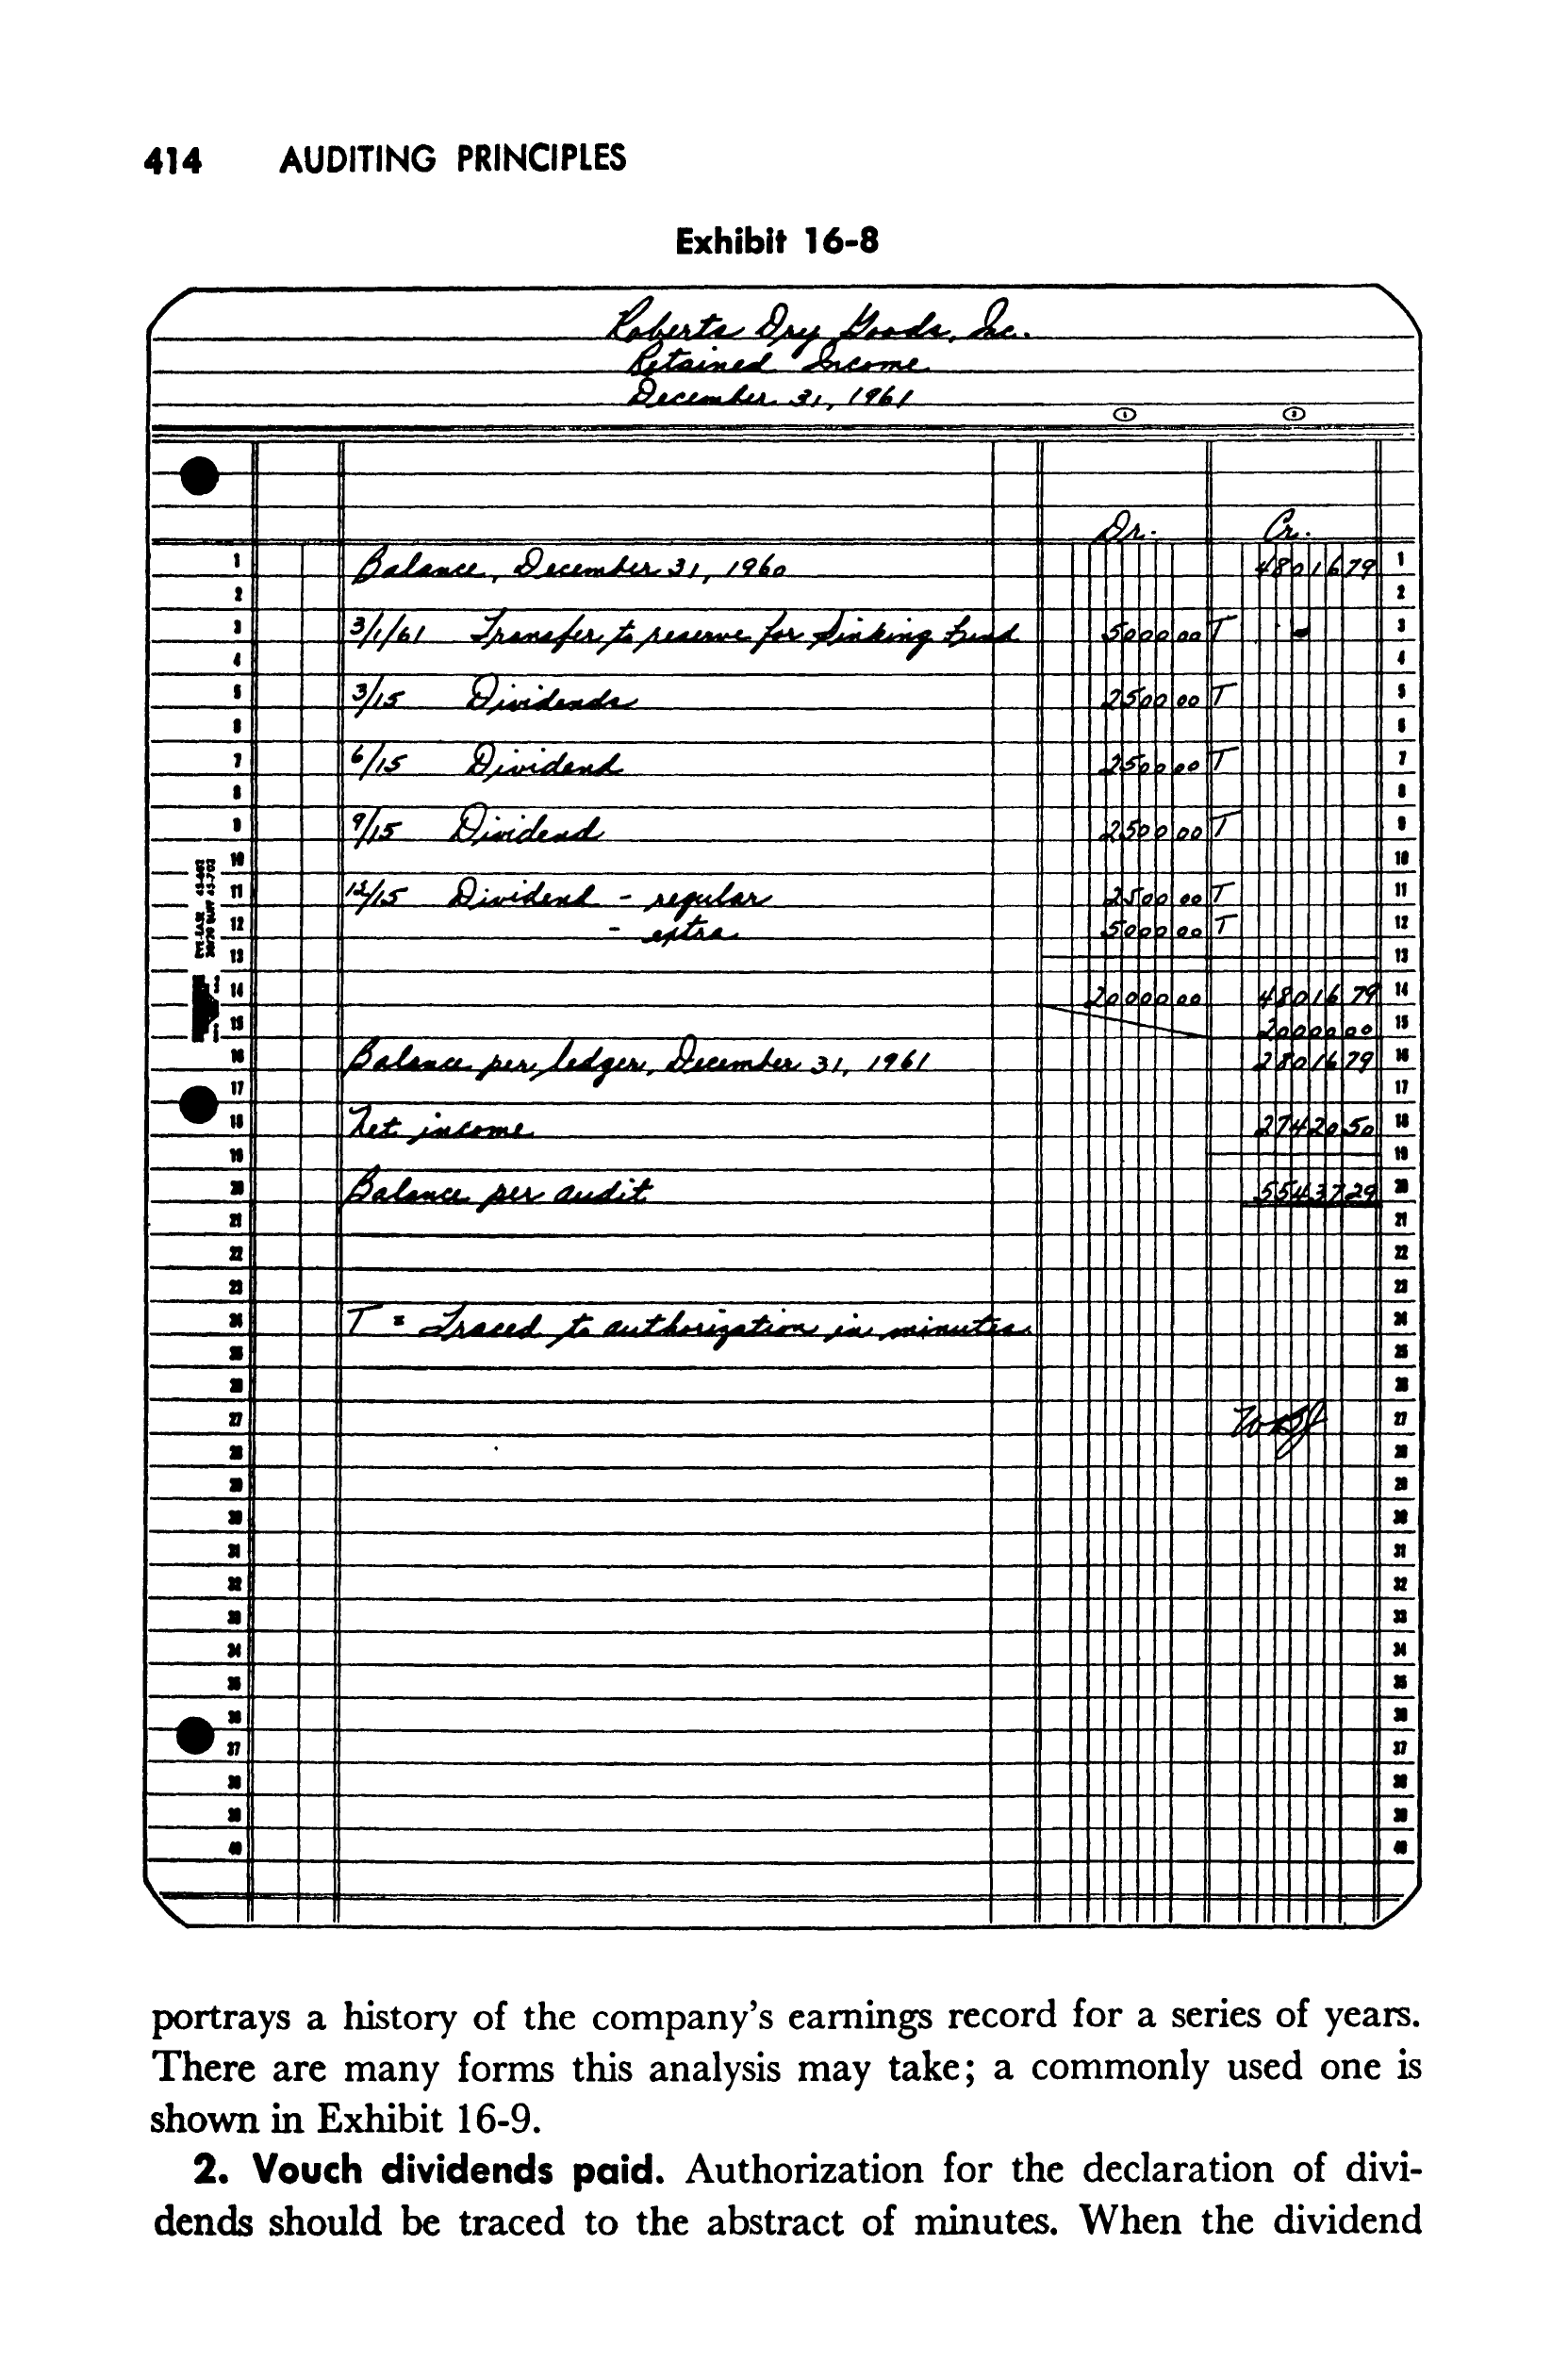 414 AUDITING PRINCIPLES
Exhibit 16-8
Roberts Dry Goods, Inc.
Retained Income
December 31, 1961
1 2
Dr. Cr.
1 Balance, December 31, 1960 48016 79 1
2 2
3 3/1/61 Transfer to reserve for Sinking Fund 5000 00 T 3
4 4
5 3/15 Dividends 2500 00 T 5
6 6
7 6/15 Dividend 2500 00 T 7
8 8
9 9/15 Dividend 2500 00 T 9
10 10
11 12/15 Dividend - regular 2500 00 T 11
12 - extra 5000 00 T 12
13 13
14 20000 00 48016 79 14
15 20000 00 15
16 Balance per ledger, December 31, 1961 28016 79 16
17 17
18 Net income 27420 50 18
19 19
20 Balance per audit 55437 29 20
21 21
22 22
23 23
24 T = Traced to authorization in minutes 24
25 25
26 26
27 27
28 28
29 29
30 30
31 31
32 32
33 33
34 34
35 35
36 36
37 37
38 38
39 39
40 40
portrays a history of the company's earnings record for a series of years.
There are many forms this analysis may take; a commonly used one is
shown in Exhibit 16-9.
2. Vouch dividends paid. Authorization for the declaration of divi-
dends should be traced to the abstract of minutes. When the dividend